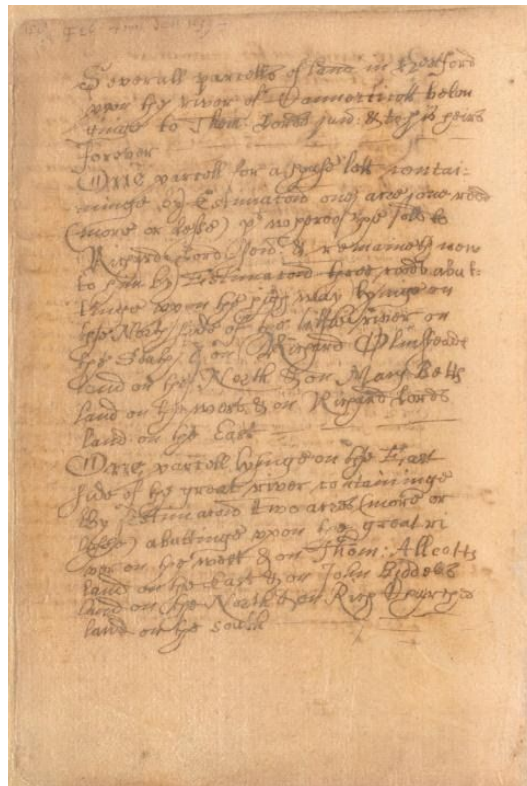 Feb
Severall parcells of land in Hertford
upon the river of Connecticott belon
ginge to Thom: Lords Juni: & to his heirs
forever
One parcell for a house lott contai-
ninge by Estimation one acre one rood
(more or lesse) pt wherof hee sold to
Richard Lord Seni: & remaineth now
to him by Estimation three roods abut-
tinge upon the high way lyinge on
the North side of the little river on
the South & on Richard Olmsteads
land on the North & on Mary Betts
land on the west & on Richard Lords
land on the East
One parcell lyinge on the East
side of the great river containinge
By Estimation two acres (more or
lesse) abuttinge upon the great ri
ver on the west & on Thom: Allcotts
land on the East & on John Biddels
land on the North & on Rich Churches
land on the south